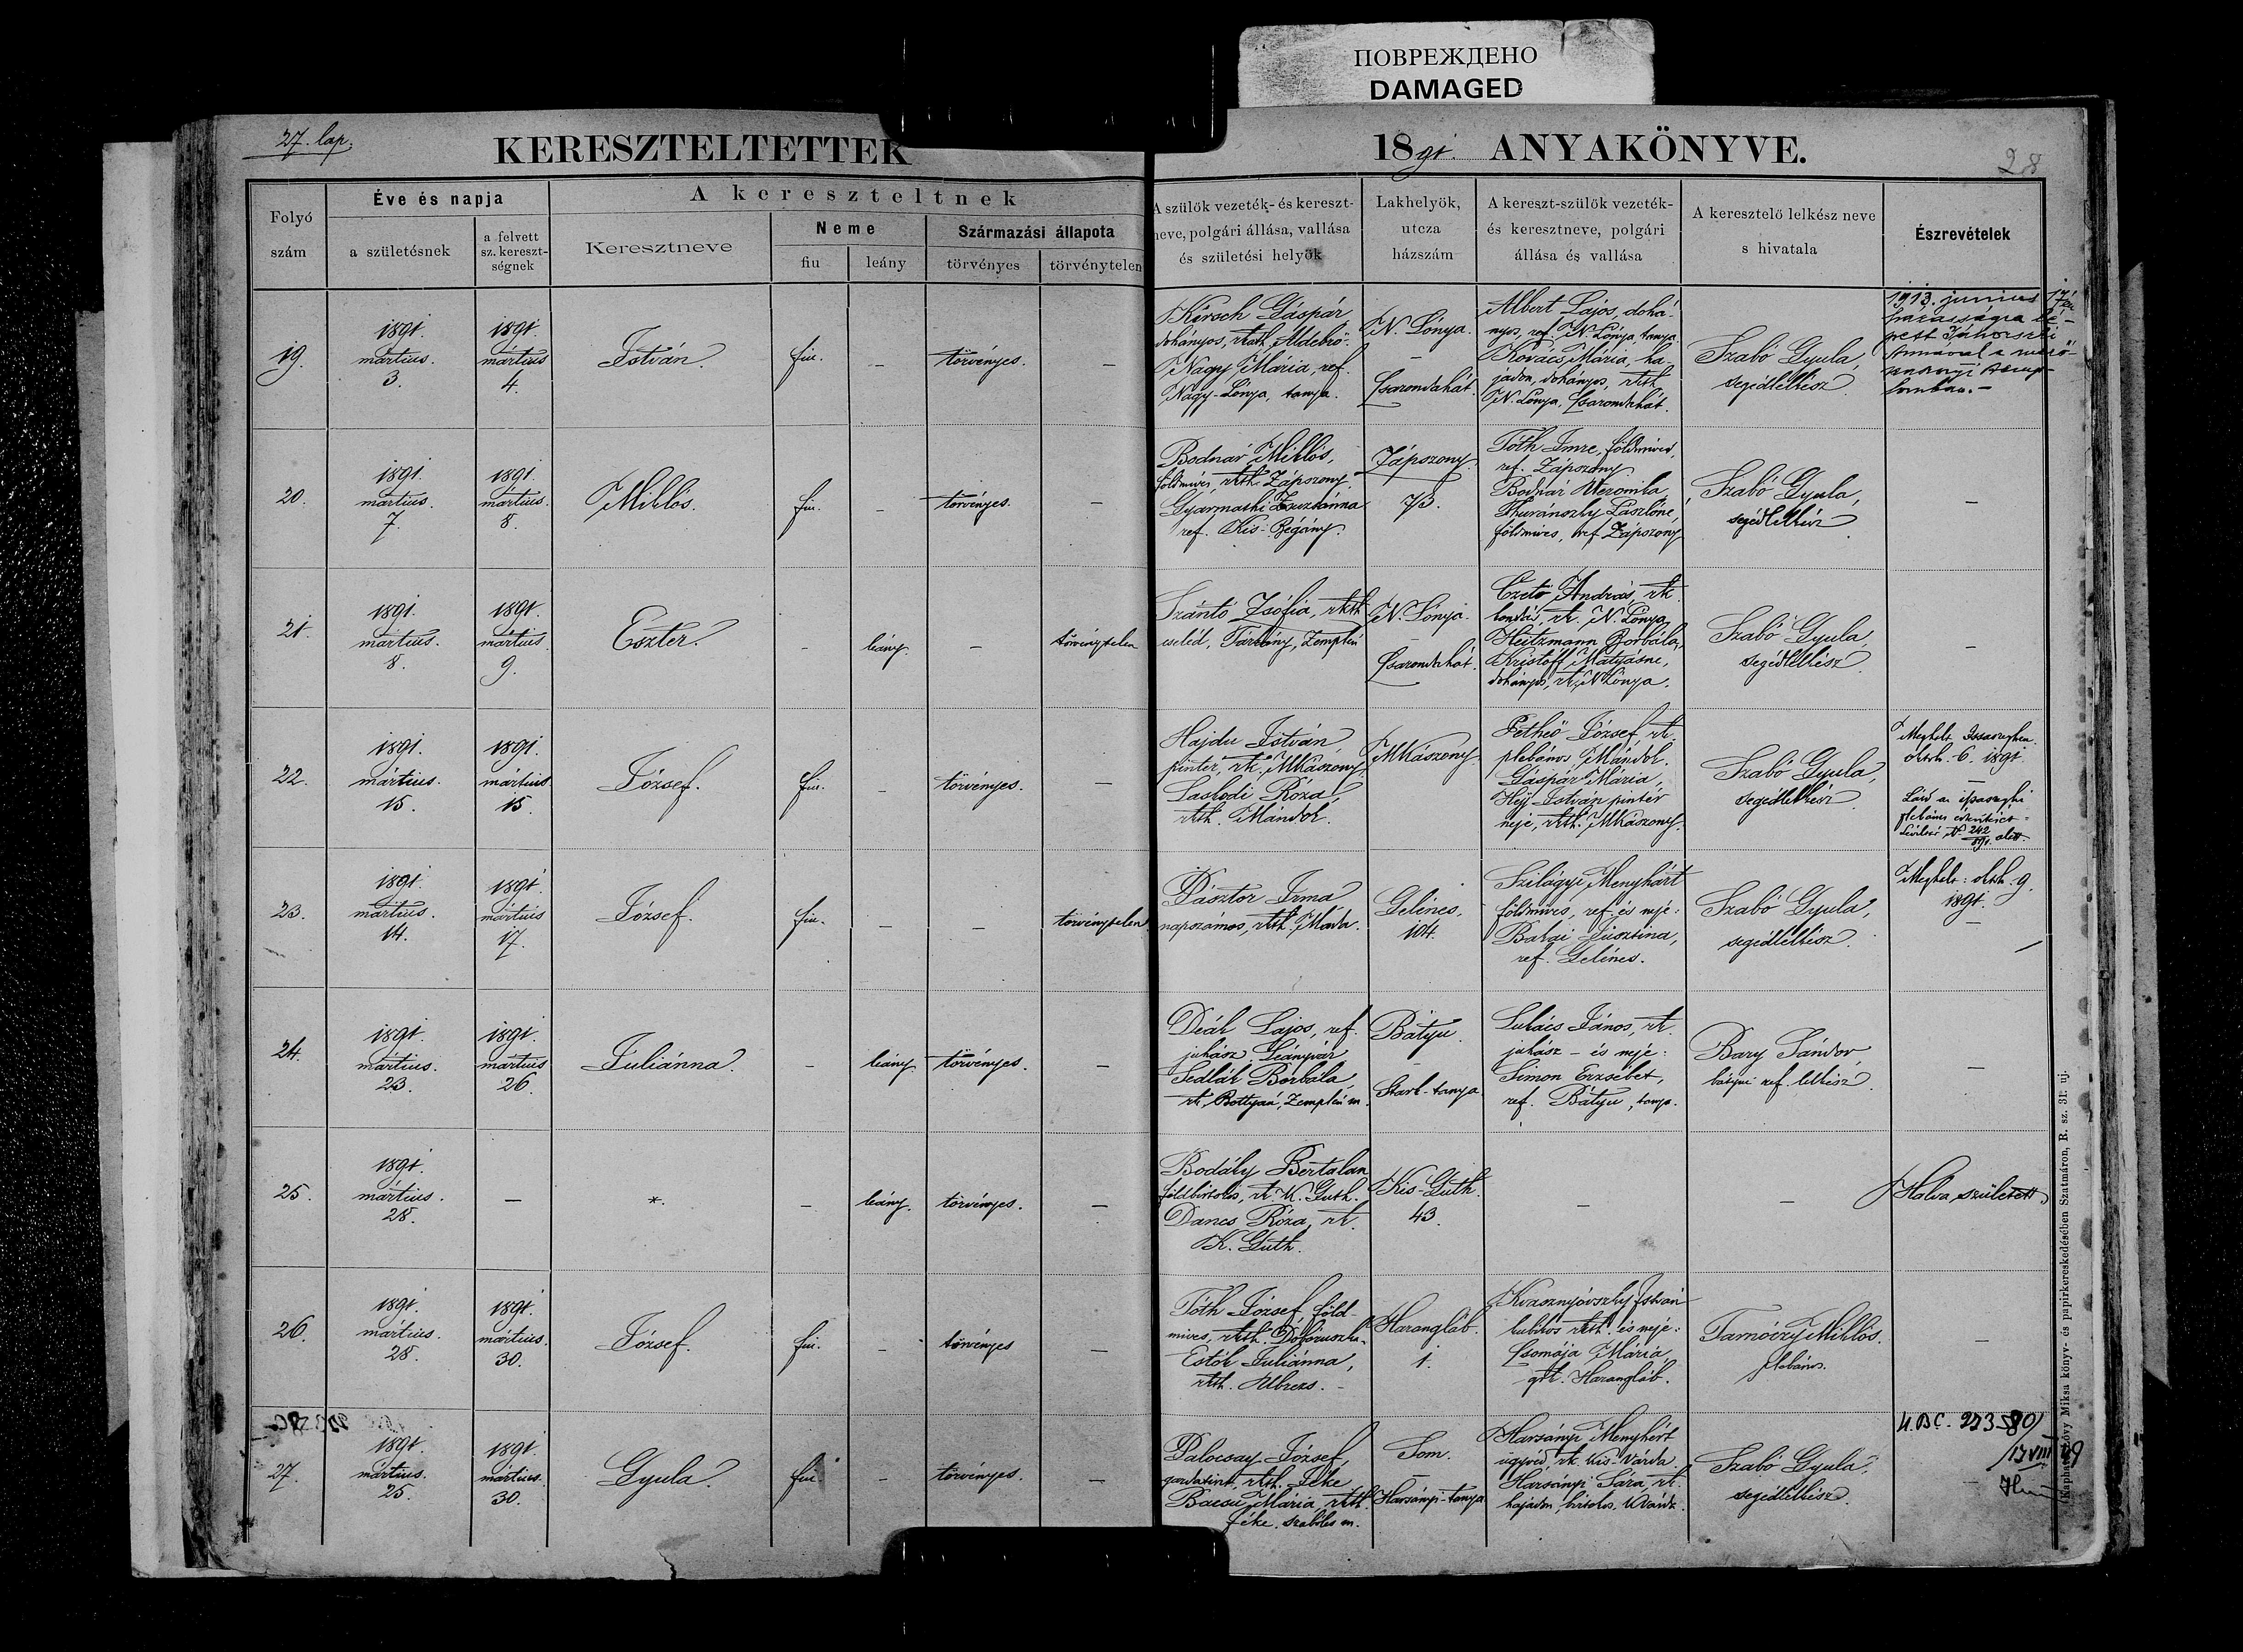 ПОВРЕЖДЕНО
DAMAGED
27. lap.
KERESZTELTETTEK
1891. ANYAKÖNYVE.
28
Folyó
szám
Éve és napja
a születésnek
a felvett
sz. kereszt-
ségnek
A kereszteltnek
Keresztneve
Neme
fiu
leány
Származási állapota
törvényes
törvénytelen
A szülők vezeték- és kereszt-
neve, polgári állása, vallása
és születési helyök
Lakhelyök,
utcza
házszám
A kereszt-szülök vezeték-
és keresztneve, polgári
állása és vallása
A keresztelő lelkész neve
s hivatala
Észrevételek
19.
1891.
mártius.
3.
1891.
mártius
4.
István.
fiu.
–
törvényes.
–
Kirsch Gáspár
dohányos, rkath. Aldebrő.
Nagy Mária, ref.
Nagy-Lónya, tanya.
N. Lónya.
–
Csarondahát.
Albert Lajos, dohá-
nyos, ref. N. Lónya, tanya.
Kovács Mária, ha-
jadon, dohányos, rkth.
N. Lónya, Csarondahát.
Szabó Gyula,
segédlelkész.
1913. junius 17én
házasságra lé-
pett
Annával a mező-
templomban.–
20.
1891.
mártius.
7.
1891.
mártius.
8.
Miklós.
fiu.
–
törvényes.
–
Bodnár Miklós,
földmíves, rkth. Zápszony.
Gyarmathi Zsuzsánna
ref. Kis-Bégány.
Zápszony.
73.
Tóth Imre, földmíves,
ref. Zápszony
Bodnár Veronika
Thuránszky Lászlóné,
földmíves, ref. Zápszony
Szabó Gyula,
segédlelkész
–
21.
1891.
mártius.
8.
1891.
mártius
9.
Eszter.
–
leány.
–
törvénytelen
Szántó Zsófia, rkth
cseléd, Tárkány, Zemplén
N. Lónya.
–
Csarondahát.
Czető András, rk.
rk. N. Lónya
Heitzmann Borbála,
Kristóff Mátyásné,
dohányos, rk. N Lónya.
Szabó Gyula,
segédlelkész
–
22.
1891.
mártius.
15.
1891.
mártius
15.
József.
fiu.
–
törvényes.
–
Hajdu István
pintér, rk. MKászony.
Laskodi Róza,
rkth. Mándok.
MKászony
Pethő József rk.
plebános Mándok.
Gáspár Mária,
Héjj István pintér
neje, rkth. MKászony.
Szabó Gyula,
segédlelkész
Meghalt Issaszeghen
oktob. 6. 1891.
–
Lásd az issaszeghi
plebános értesítését
242
891. alatt.
23.
1891.
mártius.
14.
1891.
mártius
17.
József.
fiu.
–
–
törvénytelen
Pásztor Irma
napszámos, rkth. Máda.
Gelénes,
104.
Szilágyi Menyhárt
földmíves, ref. és neje:
Barai Jusztina,
ref. Gelénes.
Szabó Gyula,
segédlelkész.
Meghalt: oktob. 9.
1891.
–
24.
1891.
mártius.
23.
1891.
mártius
26.
Juliánna.
–
leány
törvényes.
–
Deák Lajos, ref.
juhász Leányvár
Sedlák Borbála,
rk. Bottyán, Zemplén m.
Bátyu.
–
Stark-tanya
Lukács János, rk.
juhász – és neje:
Simon Erzsébet,
ref. Bátyu, tanya.
Bary Sándor,
bátyui ref. lelkész.
–
25.
1891.
mártius.
28.
–
*.
–
leány.
törvényes.
–
Bodáky Bertalan
földbirtokos, rk. K. Guth.
Dancs Róza, rk.
K. Guth.
Kis-Guth.
43.
–
–
Halva született
26.
1891.
mártius.
28.
1891.
mártius.
30.
József.
fiu.
–
törvényes
–
Tóth József, föld-
míves, rkth. Dobóruszka.
Estók Juliánna,
rkth. Ubrezs. –
Harangláb.
1.
Kvasznyovszky István
kubikos rkth. és neje:
Csomója Mária,
gk. Harangláb.
Tarnóczy Miklós.
plebános.
–
27.
1891.
mártius.
25.
1891.
mártius.
30.
Gyula.
fiu
–
törvényes.
–
Palocsay József,
gazdatiszt, rkth. Jéke
Bacsu Mária, rkth.
Jéke, szabolcs m.
Som.
–
Harsányi-tanya
Harsányi Menyhért
ügyvéd, rk. Kis-Várda.
Harsányi Sára, rk.
hajadon, birtokos, KVárda.
Szabó Gyula,
segédlelkész.